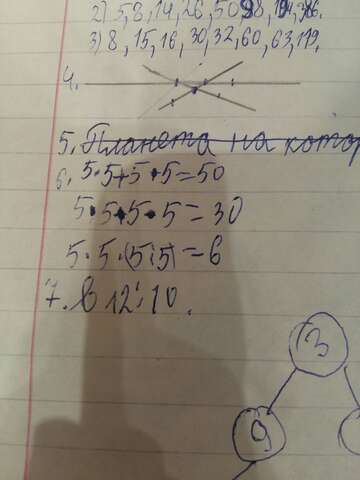 2) 5,8,14,26,50,98,194,386.
3) 8,15,16,30,32,60,63,119.
4.
5. Планета на котор
6. 5·5+5·5=50
5·5+5·5=30
5·5·(5:5)=6
7. в 12:10.
13
9